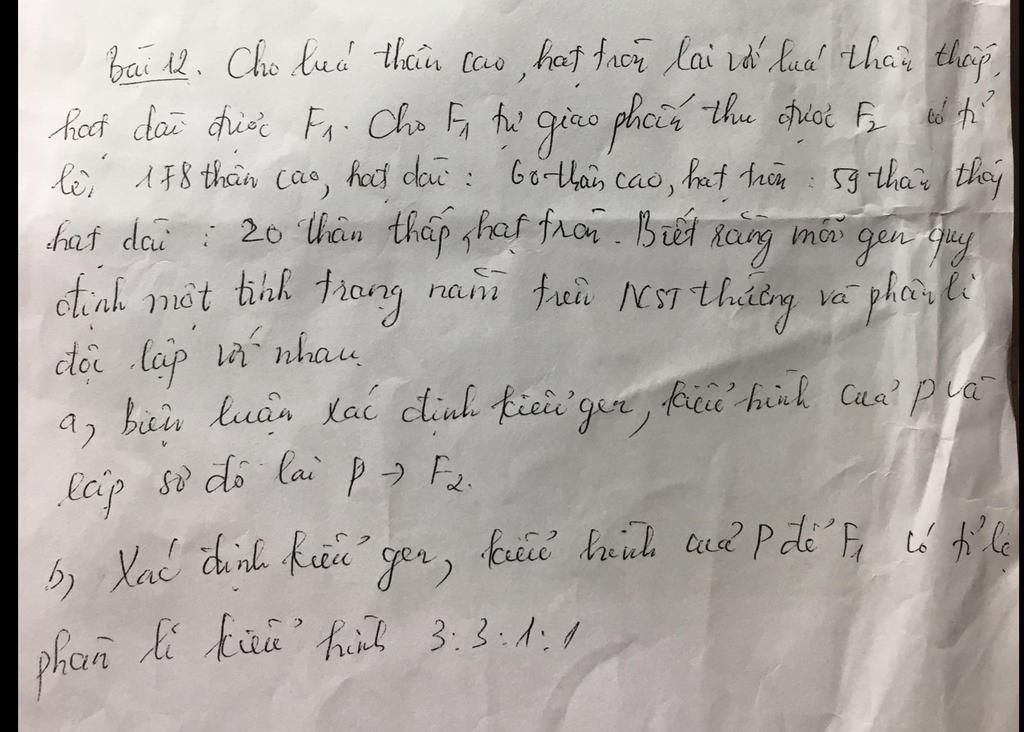 Bài 12. Cho luá thân cao, hạt tròn lai với luá thân thấp,
hạt dài được F1. Cho F1 tự giao phấn thu được F2 có tỉ
lệ, 178 thân cao, hạt dài : 60 thân cao, hạt tròn : 59 thân thấp
hạt dài : 20 thân thấp, hạt tròn. Biết rằng mỗi gen quy
định một tính trạng nằm trên NST thường và phân li
độc lập với nhau.
a, biện luận xác định kiểu gen, kiểu hình của P và
lập sơ đồ lai P → F2.
b, Xác định kiểu gen, kiểu hình của P để F1 có tỉ lệ
phân li kiểu hình 3:3:1:1